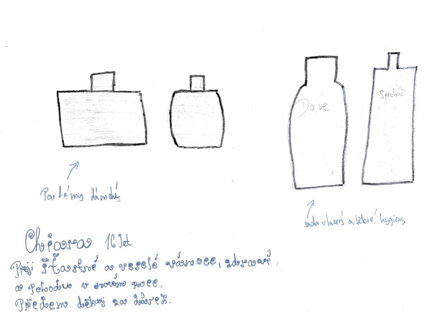 Dove
Sprcháč
Parfémy dámské
sada vlasové a tělové hygieny
Chiara 16 let
Přeji šťastné a veselé vánoce, zdraví,
a pohodu v novém roce.
Předem děkuji za dárek.